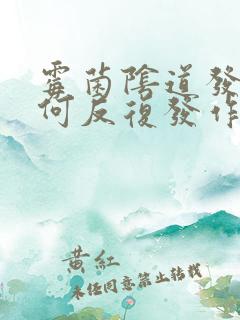 霉菌陰道發
何反復發作
黃紅
未任同意禁止转载